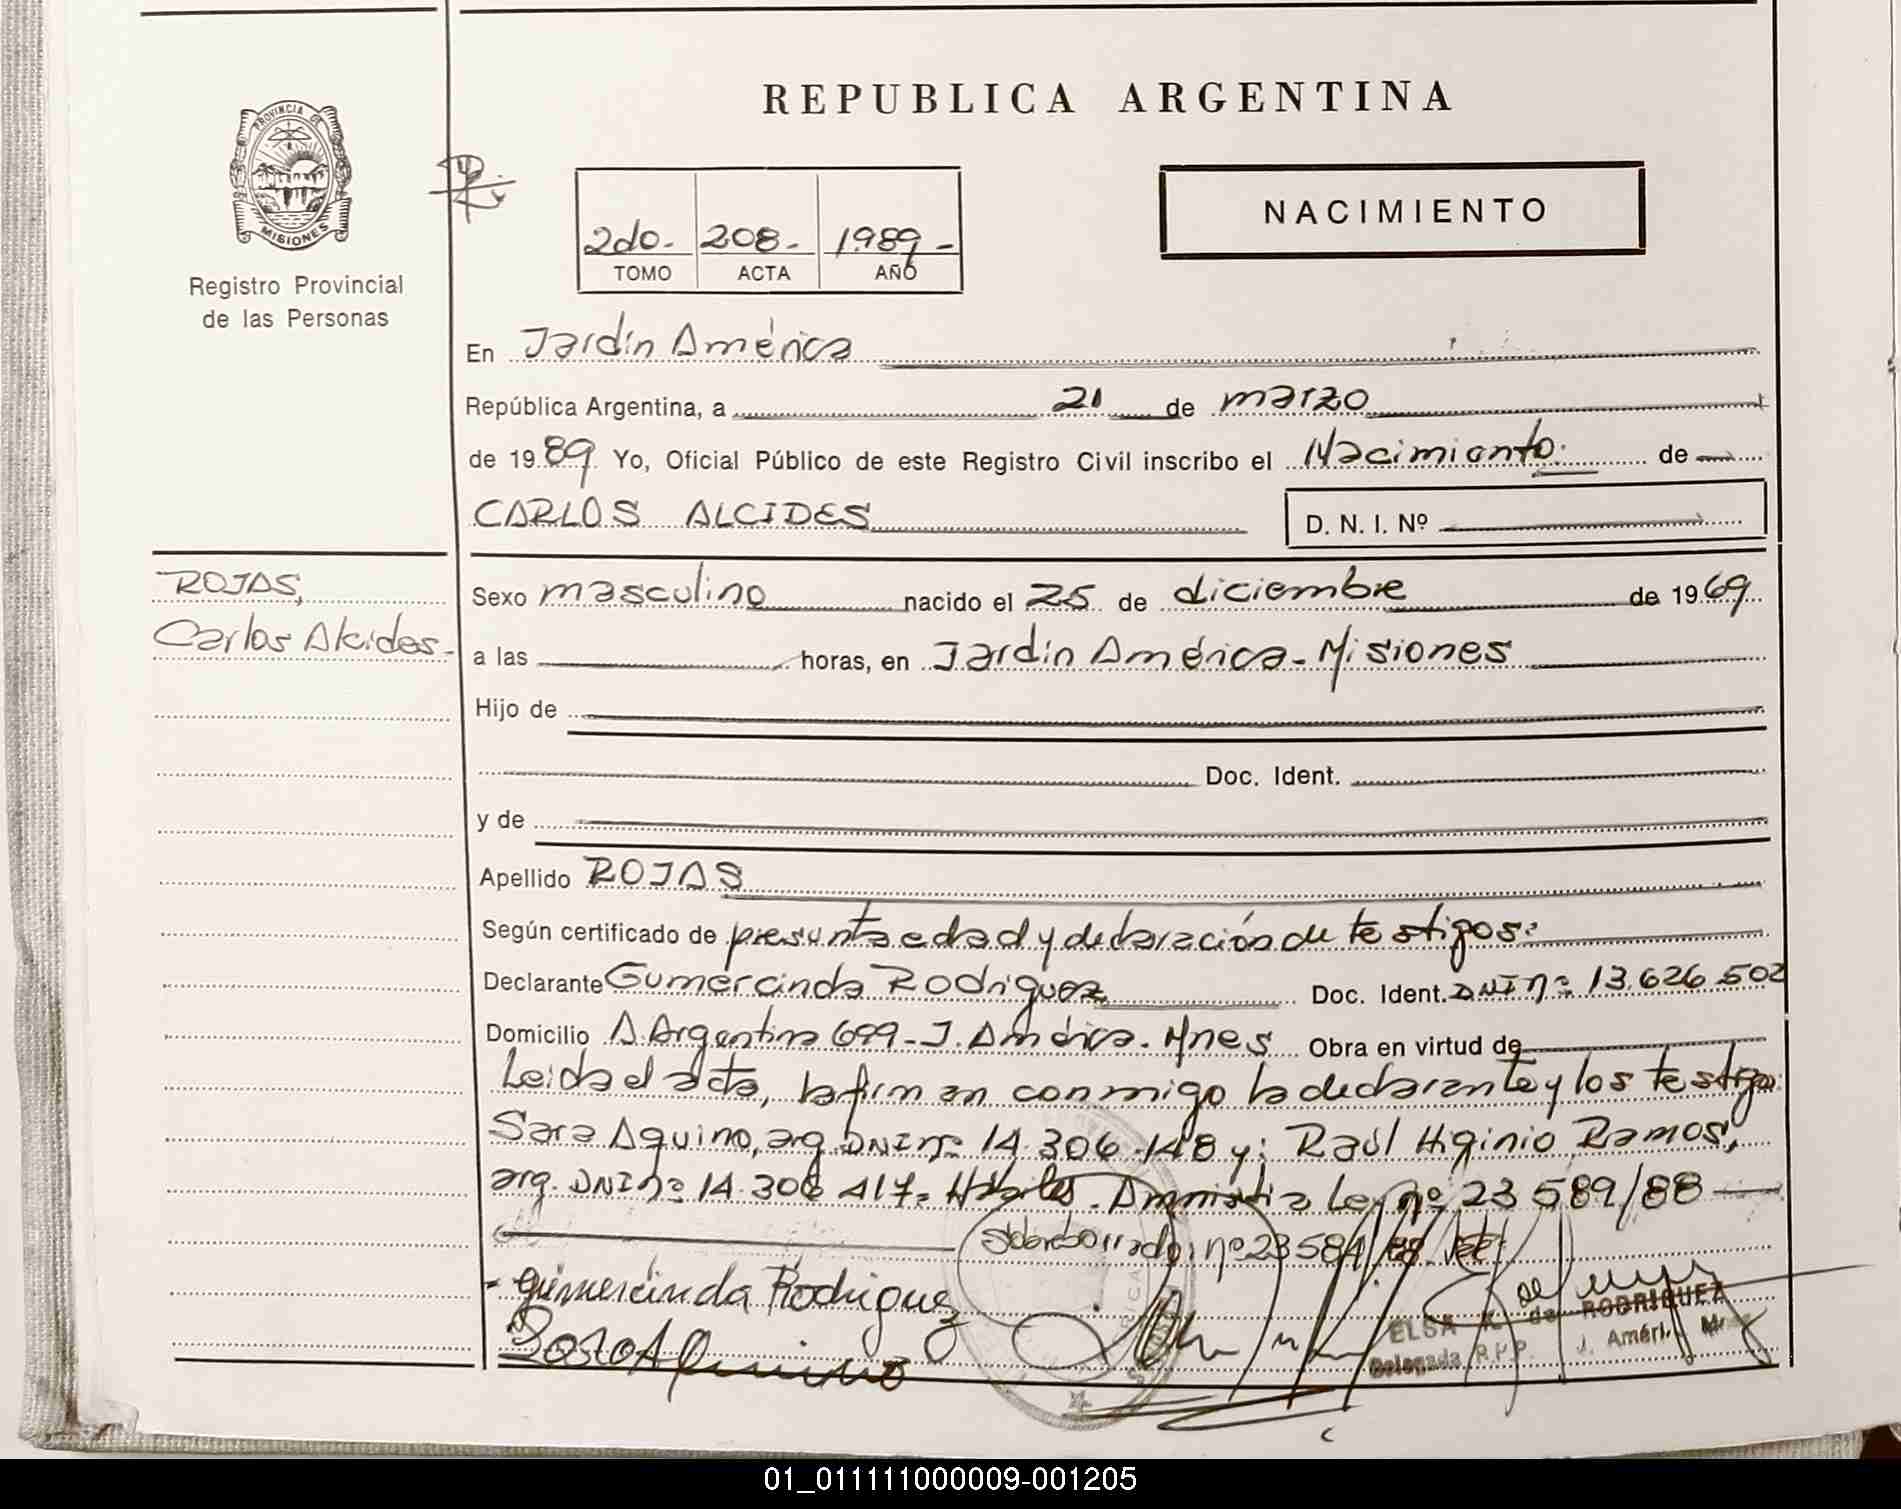 REPUBLICA ARGENTINA
PROVINCIA DE
MISIONES
Registro Provincial
de las Personas
2do.- 208.- 1989.-
TOMO ACTA AÑO
NACIMIENTO
En Jardín América
República Argentina, a 21 de marzo
de 1989 Yo, Oficial Público de este Registro Civil inscribo el Nacimiento. de
CARLOS ALCIDES
D. N. I. Nº
ROJAS,
Carlos Alcides.-
Sexo masculino nacido el 25 de diciembre de 1969
a las horas, en Jardín América.- Misiones
Hijo de
Doc. Ident.
y de
Apellido ROJAS
Según certificado de presunta edad y declaración de testigos:
Declarante Gumercinda Rodriguez Doc. Ident. DNI nº 13.626.502
Domicilio A. Argentina 699 - J. América. Mnes Obra en virtud de
Leida el acta, la firman conmigo la declarante y los testigos
Sara Aquino, arg. DNI nº 14.306.148 y: Raúl Higinio Ramos,
arg. DNI nº 14.306.417.= Hábiles. Amnistia Ley nº 23 589/88
Sobreborrado: nº 23584/88
gumercinda Rodriguez
ELSA de RODRIGUEZ
Delegada R.P.P. J. Améri.
01_011111000009-001205